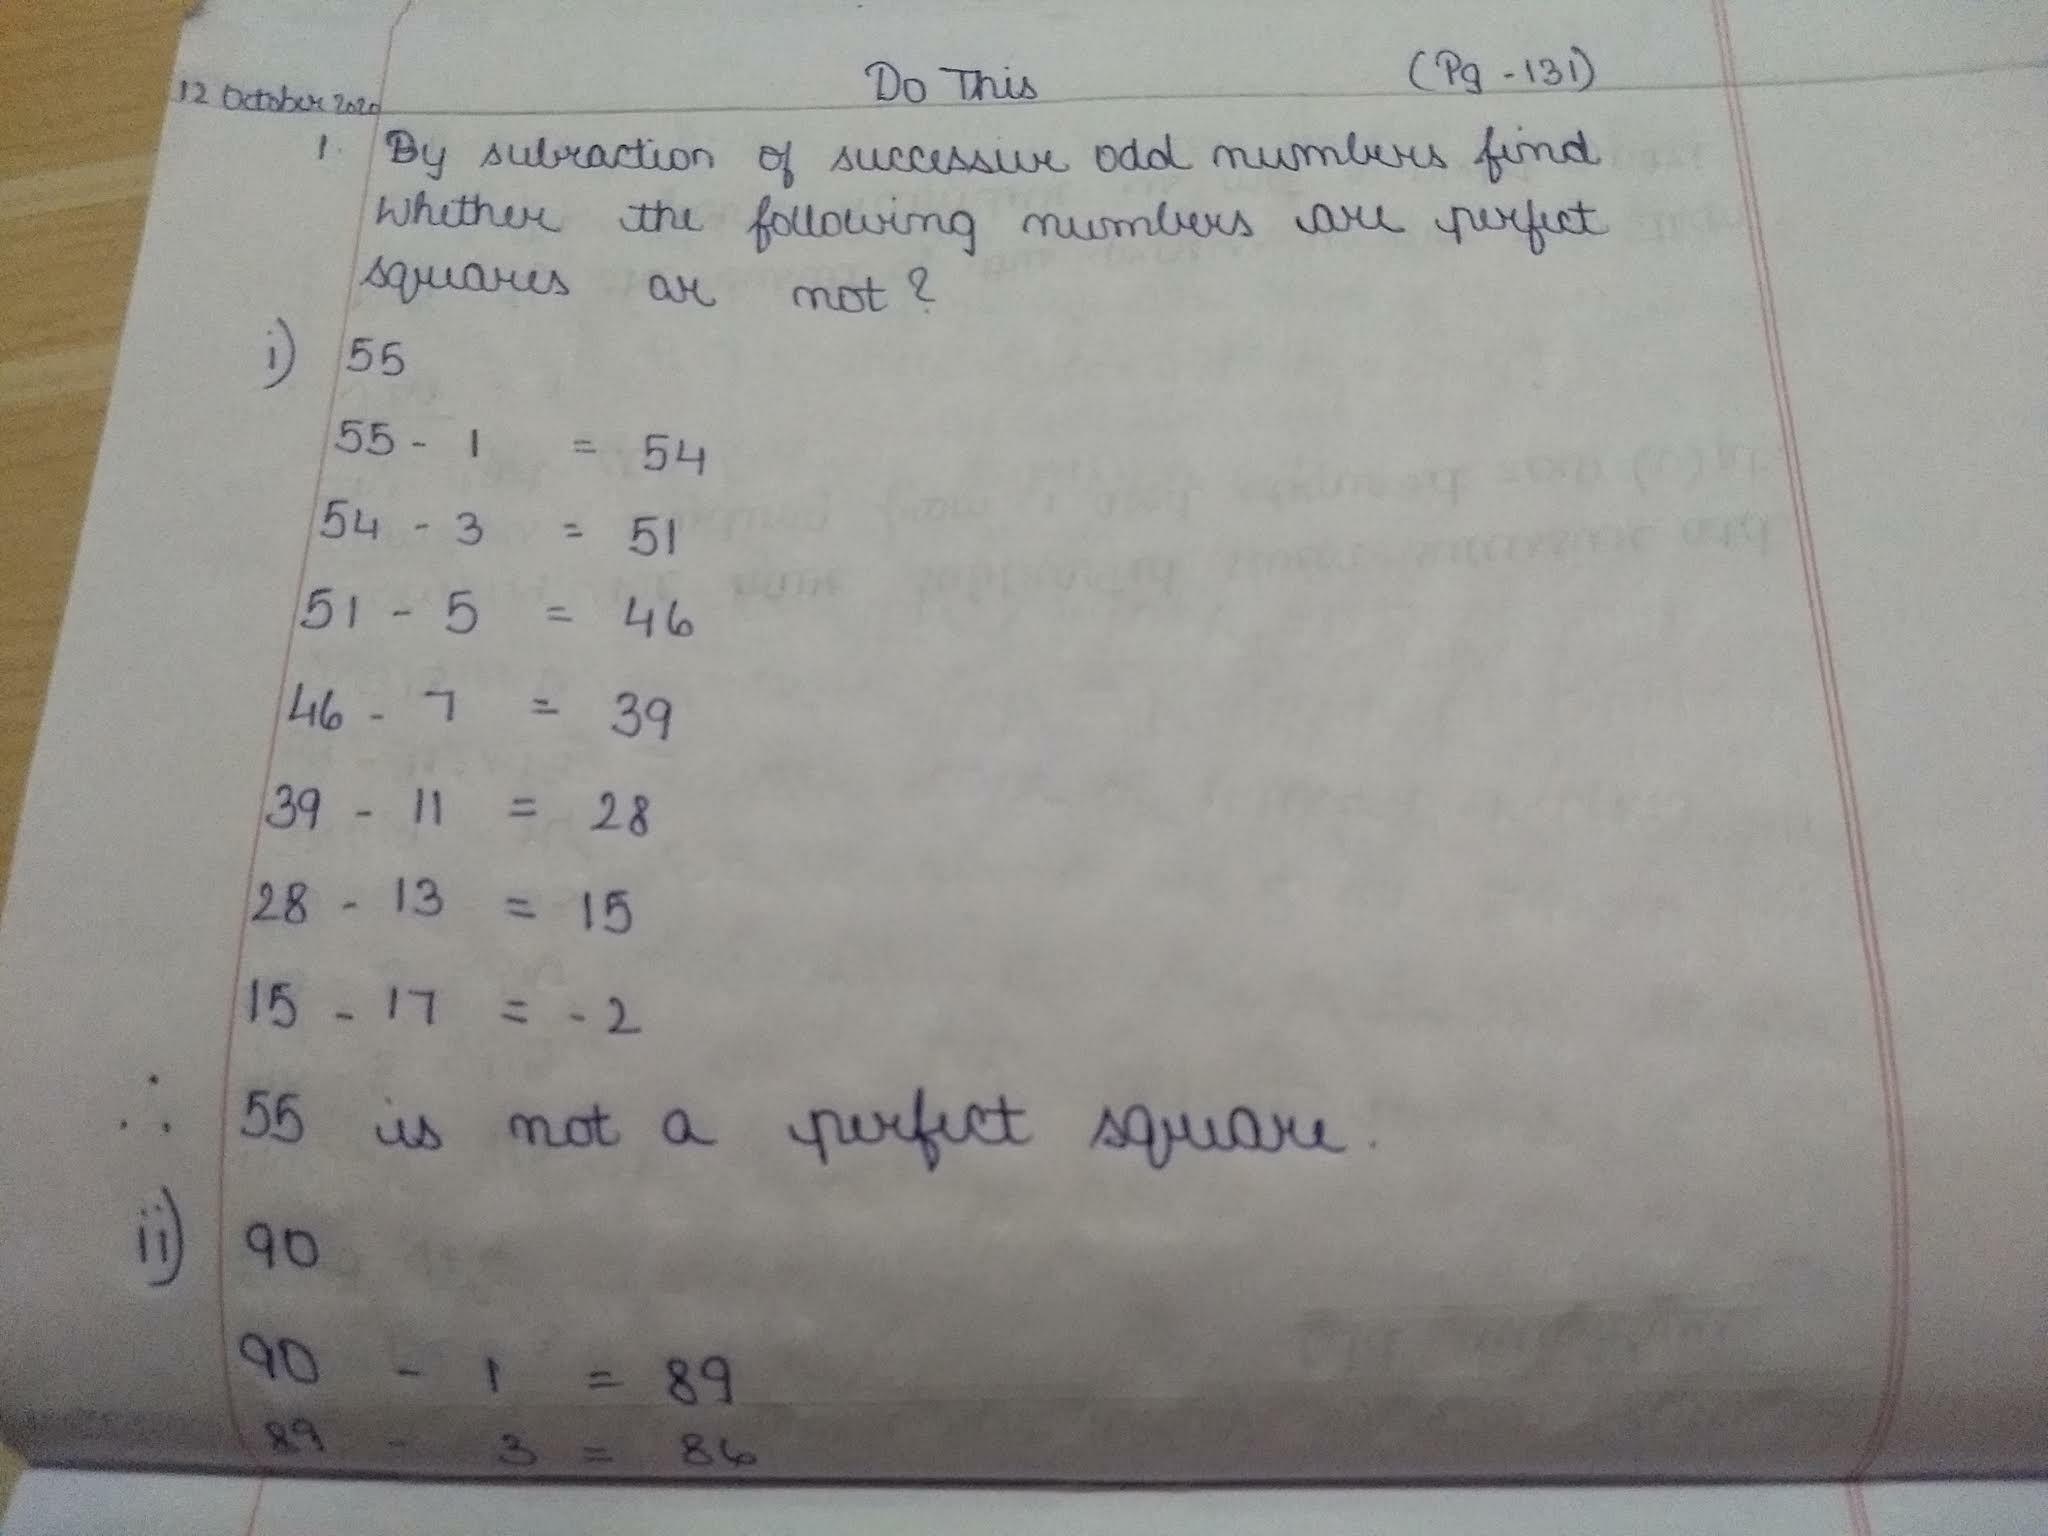 Do This (Pg - 131)
12 October 2020
1. By subraction of successive odd numbers find
whether the following numbers are perfect
squares or not?
i) 55
55 - 1 = 54
54 - 3 = 51
51 - 5 = 46
46 - 7 = 39
39 - 11 = 28
28 - 13 = 15
15 - 17 = -2
∴ 55 is not a perfect square.
ii) 90
90 - 1 = 89
89 - 3 = 86